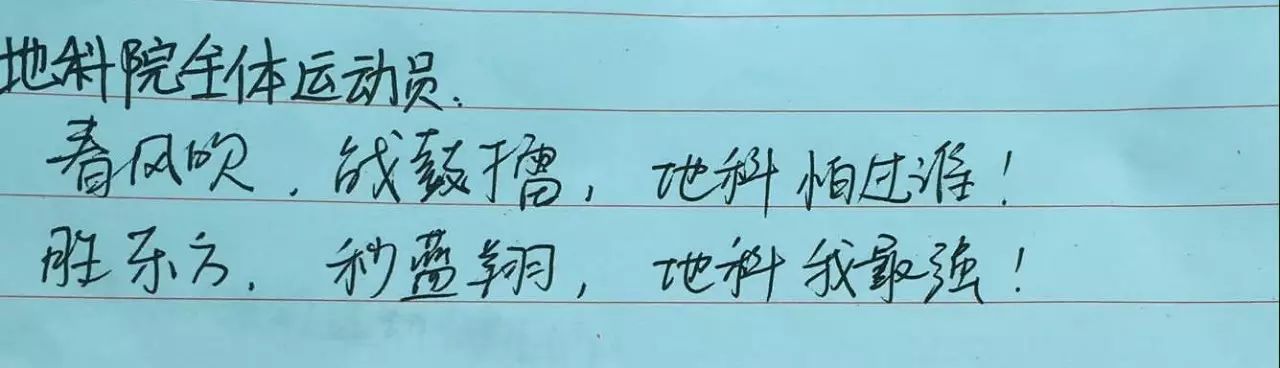 地科院全体运动员：
春风吹，战鼓擂，地科怕过谁！
胜东方，秒蓝翔，地科我最强！